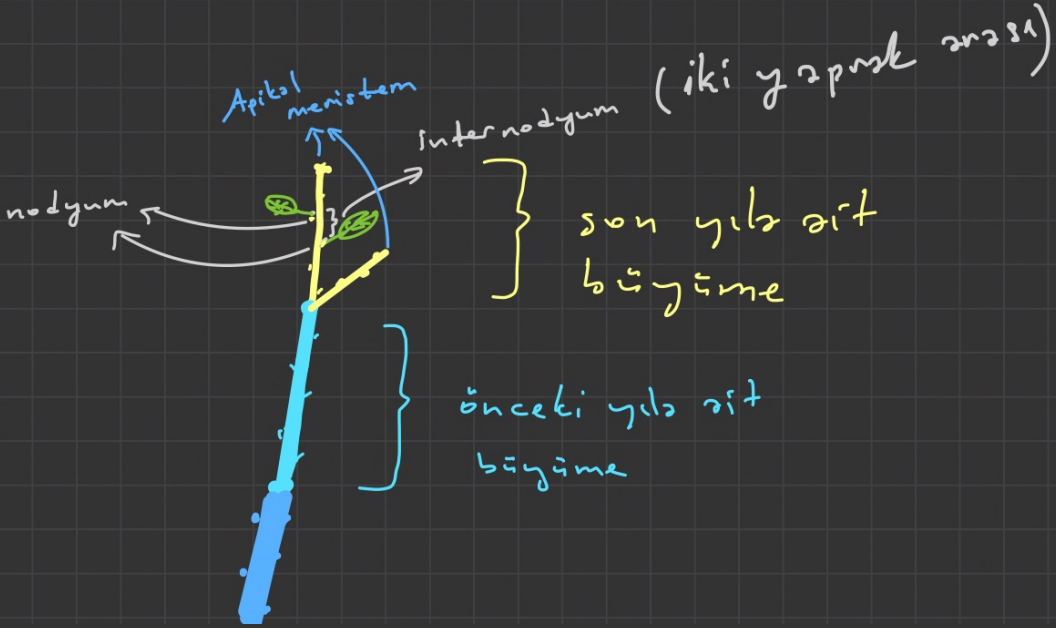 Apikal
meristem
internodyum
(iki yaprak arası)
nodyum
son yıla ait
büyüme
önceki yıla ait
büyüme